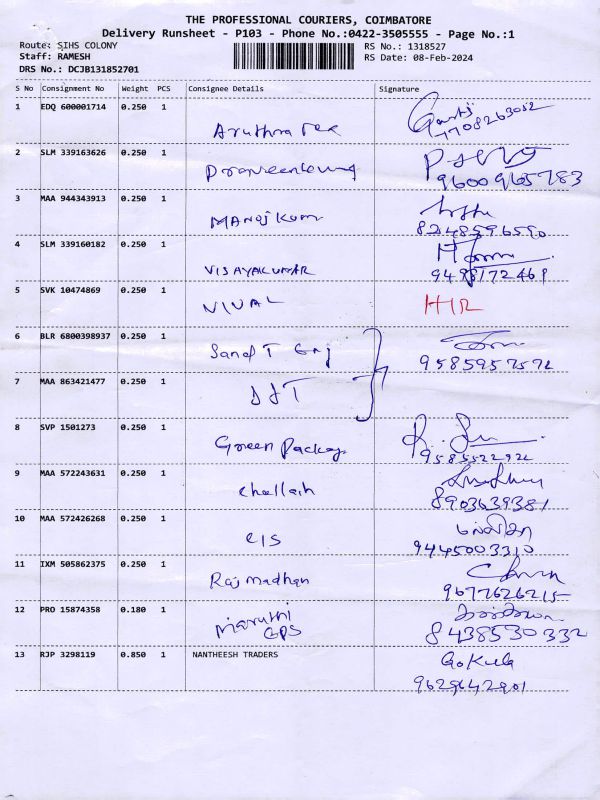 THE PROFESSIONAL COURIERS, COIMBATORE
Delivery Runsheet - P103 - Phone No.:0422-3505555 - Page No.:1
Route: SIHS COLONY
RS No.: 1318527
Staff: RAMESH
RS Date: 08-Feb-2024
DRS No.: DCJB131852701
S No Consignment No Weight PCS Consignee Details Signature
1 EDQ 600001714 0.250 1 Aruthra Tex
7708263052
2 SLM 339163626 0.250 1
9600965783
3 MAA 944343913 0.250 1 MANojkum
8248596590
4 SLM 339160182 0.250 1 VIJAYAKUMAR
9498172461
5 SVK 10474869 0.250 1 NIVAL HIR
6 BLR 6800398937 0.250 1
9585957572
7 MAA 863421477 0.250 1
8 SVP 1501273 0.250 1 Green Packag
9585522922
9 MAA 572243631 0.250 1 Challaih
8903639381
10 MAA 572426268 0.250 1 CIS
9445003310
11 IXM 505862375 0.250 1 Rajmadhan
9677626215
12 PRO 15874358 0.180 1 Maruthi
GPS
8438530332
13 RJP 3298119 0.850 1 NANTHEESH TRADERS Gokula
9629642901